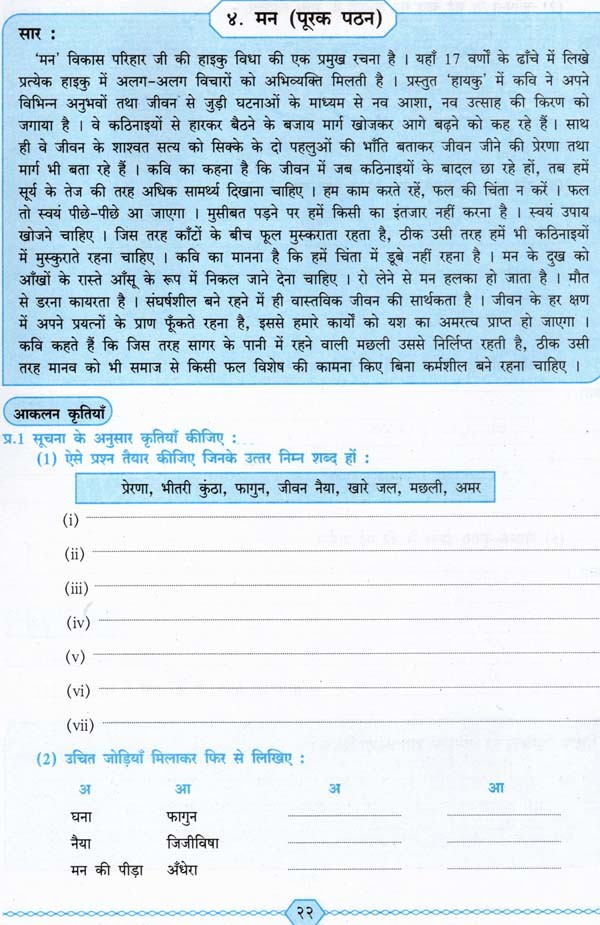 ४. मन (पूरक पठन)
सार :
'मन' विकास परिहार जी की हाइकु विधा की एक प्रमुख रचना है । यहाँ 17 वर्णों के ढाँचे में लिखे
प्रत्येक हाइकु में अलग-अलग विचारों को अभिव्यक्ति मिलती है । प्रस्तुत 'हायकु' में कवि ने अपने
विभिन्न अनुभवों तथा जीवन से जुड़ी घटनाओं के माध्यम से नव आशा, नव उत्साह की किरण को
जगाया है । वे कठिनाइयों से हारकर बैठने के बजाय मार्ग खोजकर आगे बढ़ने को कह रहे हैं । साथ
ही वे जीवन के शाश्वत सत्य को सिक्के के दो पहलुओं की भाँति बताकर जीवन जीने की प्रेरणा तथा
मार्ग भी बता रहे हैं । कवि का कहना है कि जीवन में जब कठिनाइयों के बादल छा रहे हों, तब हमें
सूर्य के तेज की तरह अधिक सामर्थ्य दिखाना चाहिए । हम काम करते रहें, फल की चिंता न करें । फल
तो स्वयं पीछे-पीछे आ जाएगा । मुसीबत पड़ने पर हमें किसी का इंतजार नहीं करना है । स्वयं उपाय
खोजने चाहिए । जिस तरह काँटों के बीच फूल मुस्कराता रहता है, ठीक उसी तरह हमें भी कठिनाइयों
में मुस्कुराते रहना चाहिए । कवि का मानना है कि हमें चिंता में डूबे नहीं रहना है । मन के दुख को
आँखों के रास्ते आँसू के रूप में निकल जाने देना चाहिए । रो लेने से मन हलका हो जाता है । मौत
से डरना कायरता है । संघर्षशील बने रहने में ही वास्तविक जीवन की सार्थकता है । जीवन के हर क्षण
में अपने प्रयत्नों के प्राण फूँकते रहना है, इससे हमारे कार्यों को यश का अमरत्व प्राप्त हो जाएगा ।
कवि कहते हैं कि जिस तरह सागर के पानी में रहने वाली मछली उससे निर्लिप्त रहती है, ठीक उसी
तरह मानव को भी समाज से किसी फल विशेष की कामना किए बिना कर्मशील बने रहना चाहिए ।
आकलन कृतियाँ
प्र.1 सूचना के अनुसार कृतियाँ कीजिए :
(1) ऐसे प्रश्न तैयार कीजिए जिनके उत्तर निम्न शब्द हों :
प्रेरणा, भीतरी कुंठा, फागुन, जीवन नैया, खारे जल, मछली, अमर
(i)
(ii)
(iii)
(iv)
(v)
(vi)
(vii)
(2) उचित जोड़ियाँ मिलाकर फिर से लिखिए :
अ आ अ आ
घना फागुन
नैया जिजीविषा
मन की पीड़ा अँधेरा
२२